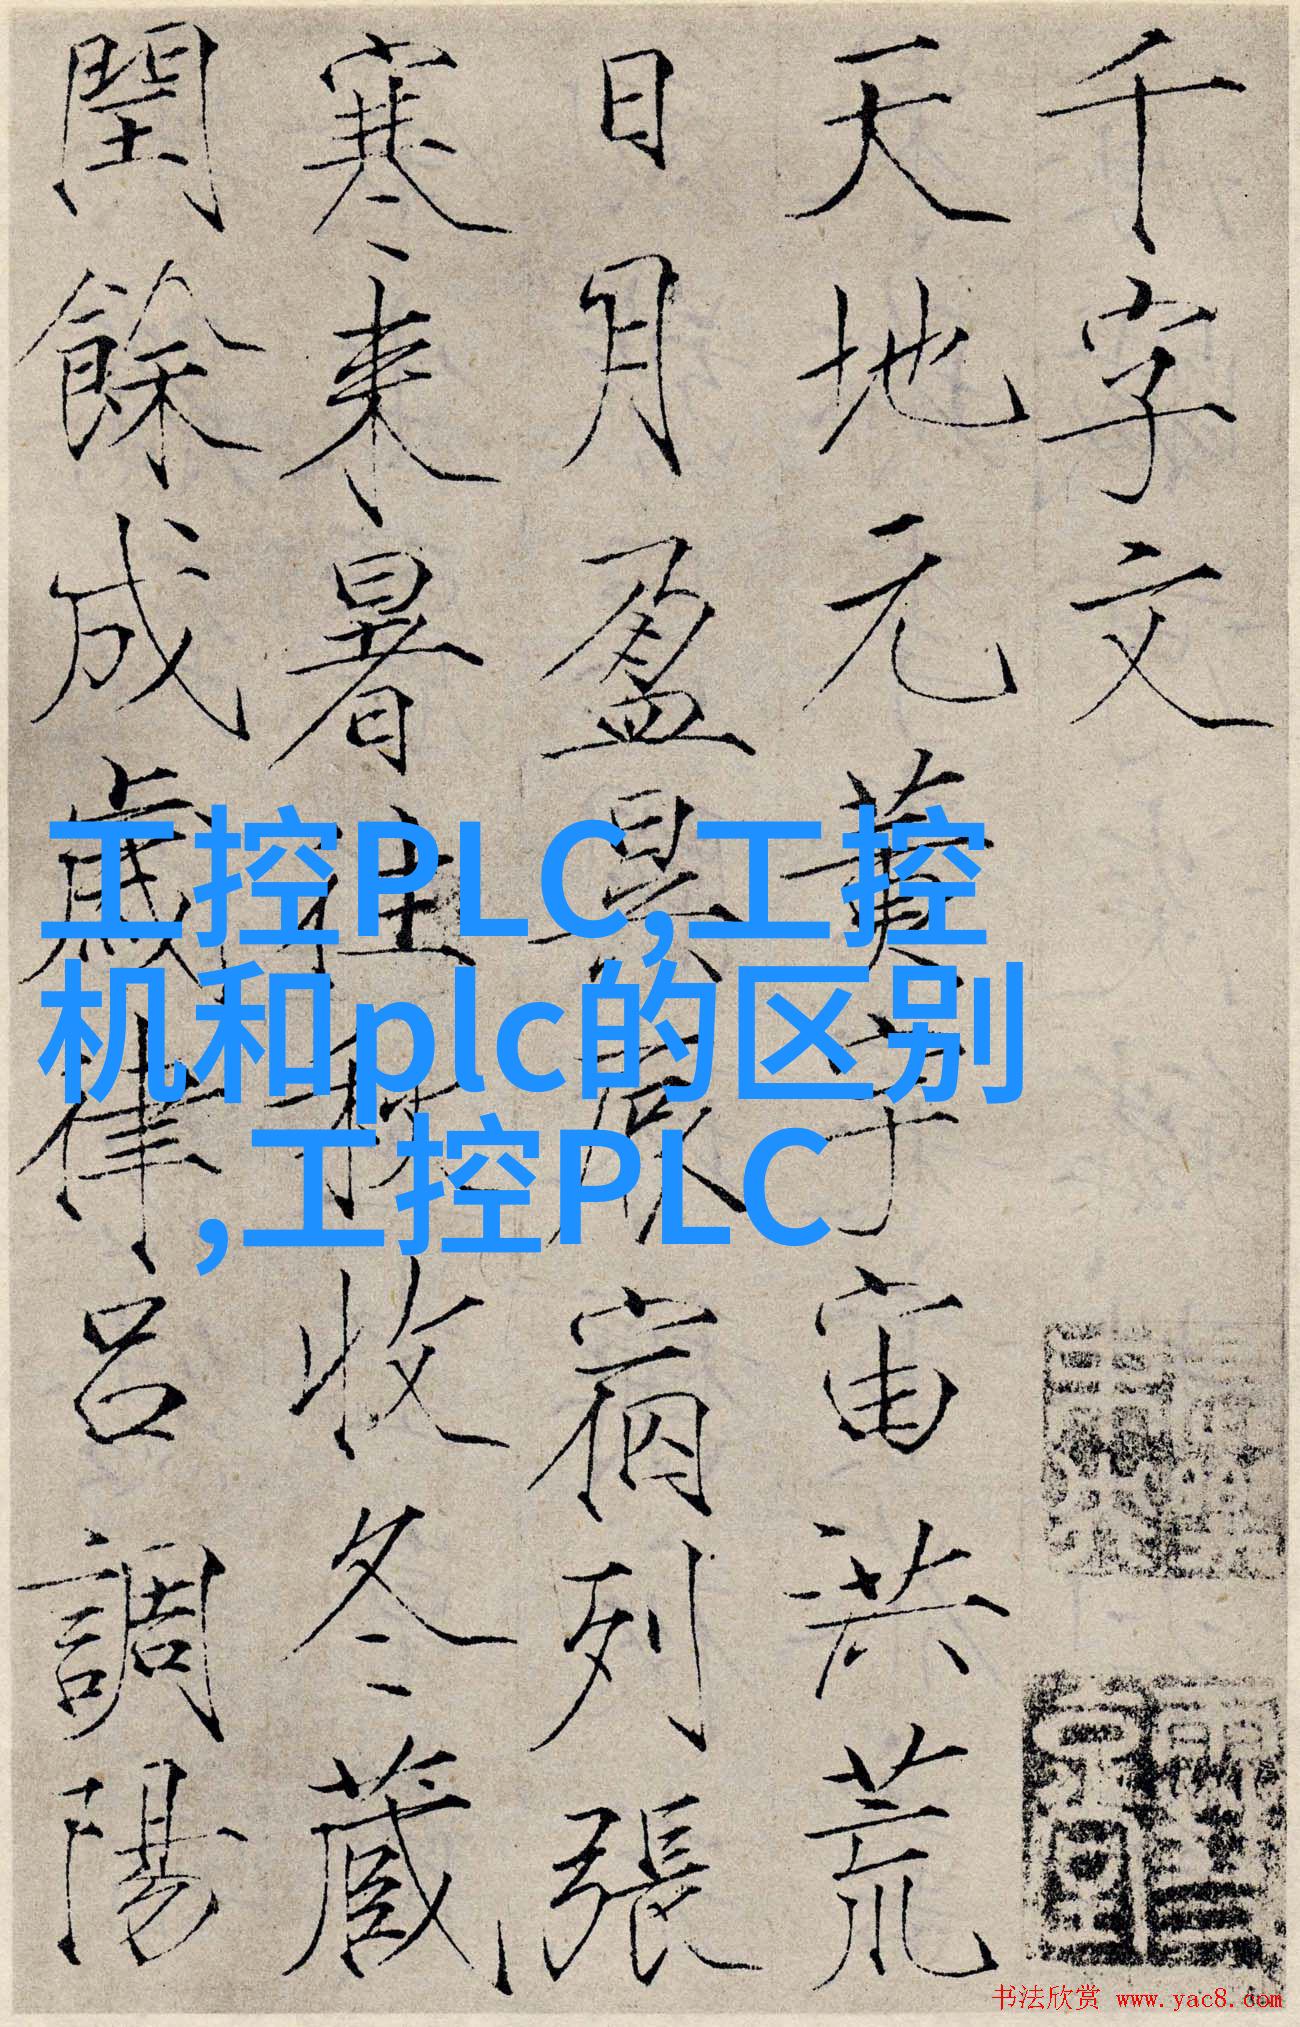 千字文
天地元黃宇宙洪荒
日月盈昃辰宿列張
寒来暑往秋收冬藏
閏餘成歲律呂調陽
工控PLC,工控
机和plc的区别
,工控PLC
书法欣赏 www.yac8.com